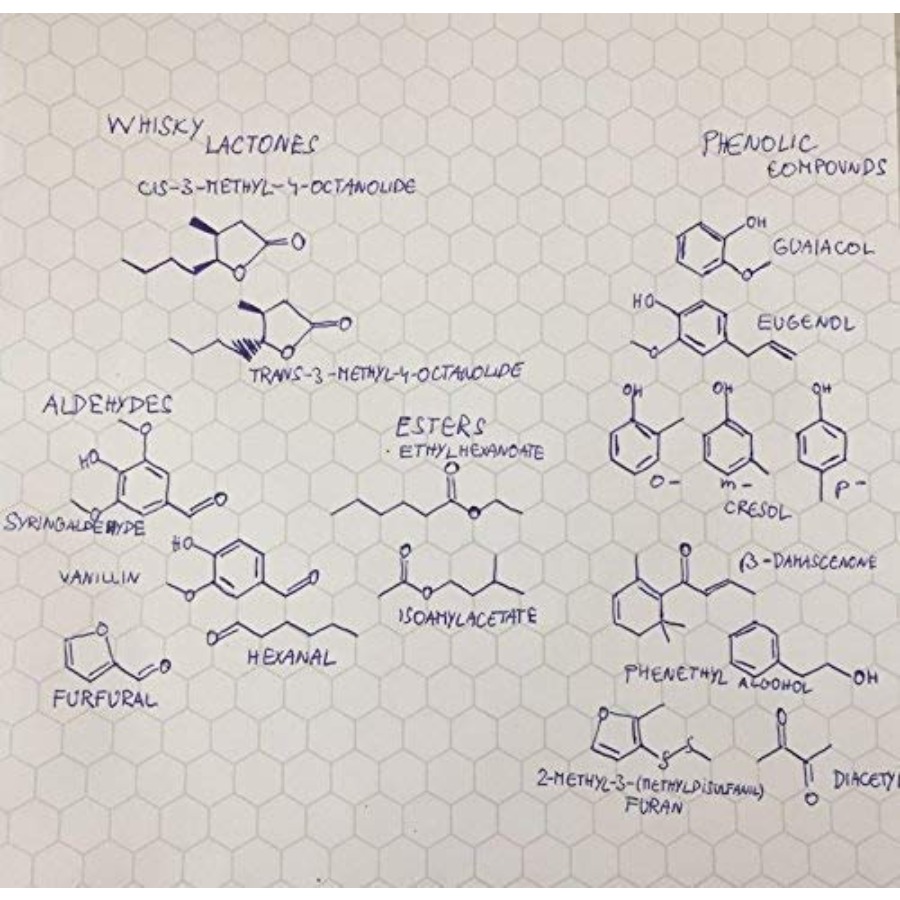 WHISKY
LACTONES
CIS-3-METHYL-4-OCTANOLIDE
O
O
O
O
TRANS-3-METHYL-4-OCTANOLIDE
ALDEHYDES
O
HO
O
O
SYRINGALDEHYDE
HO
O
O
VANILLIN
O
O
FURFURAL
O
HEXANAL
ESTERS
ETHYLHEXANOATE
O
O
O
O
ISOAMYLACETATE
PHENOLIC
COMPOUNDS
OH
O
GUAIACOL
HO
O
EUGENOL
OH
OH
OH
O-
m-
p-
CRESOL
O
β-DAMASCENONE
OH
PHENETHYL ALCOHOL
O
S
S
2-METHYL-3-(METHYLDISULFANIL)
FURAN
O
O
DIACETY